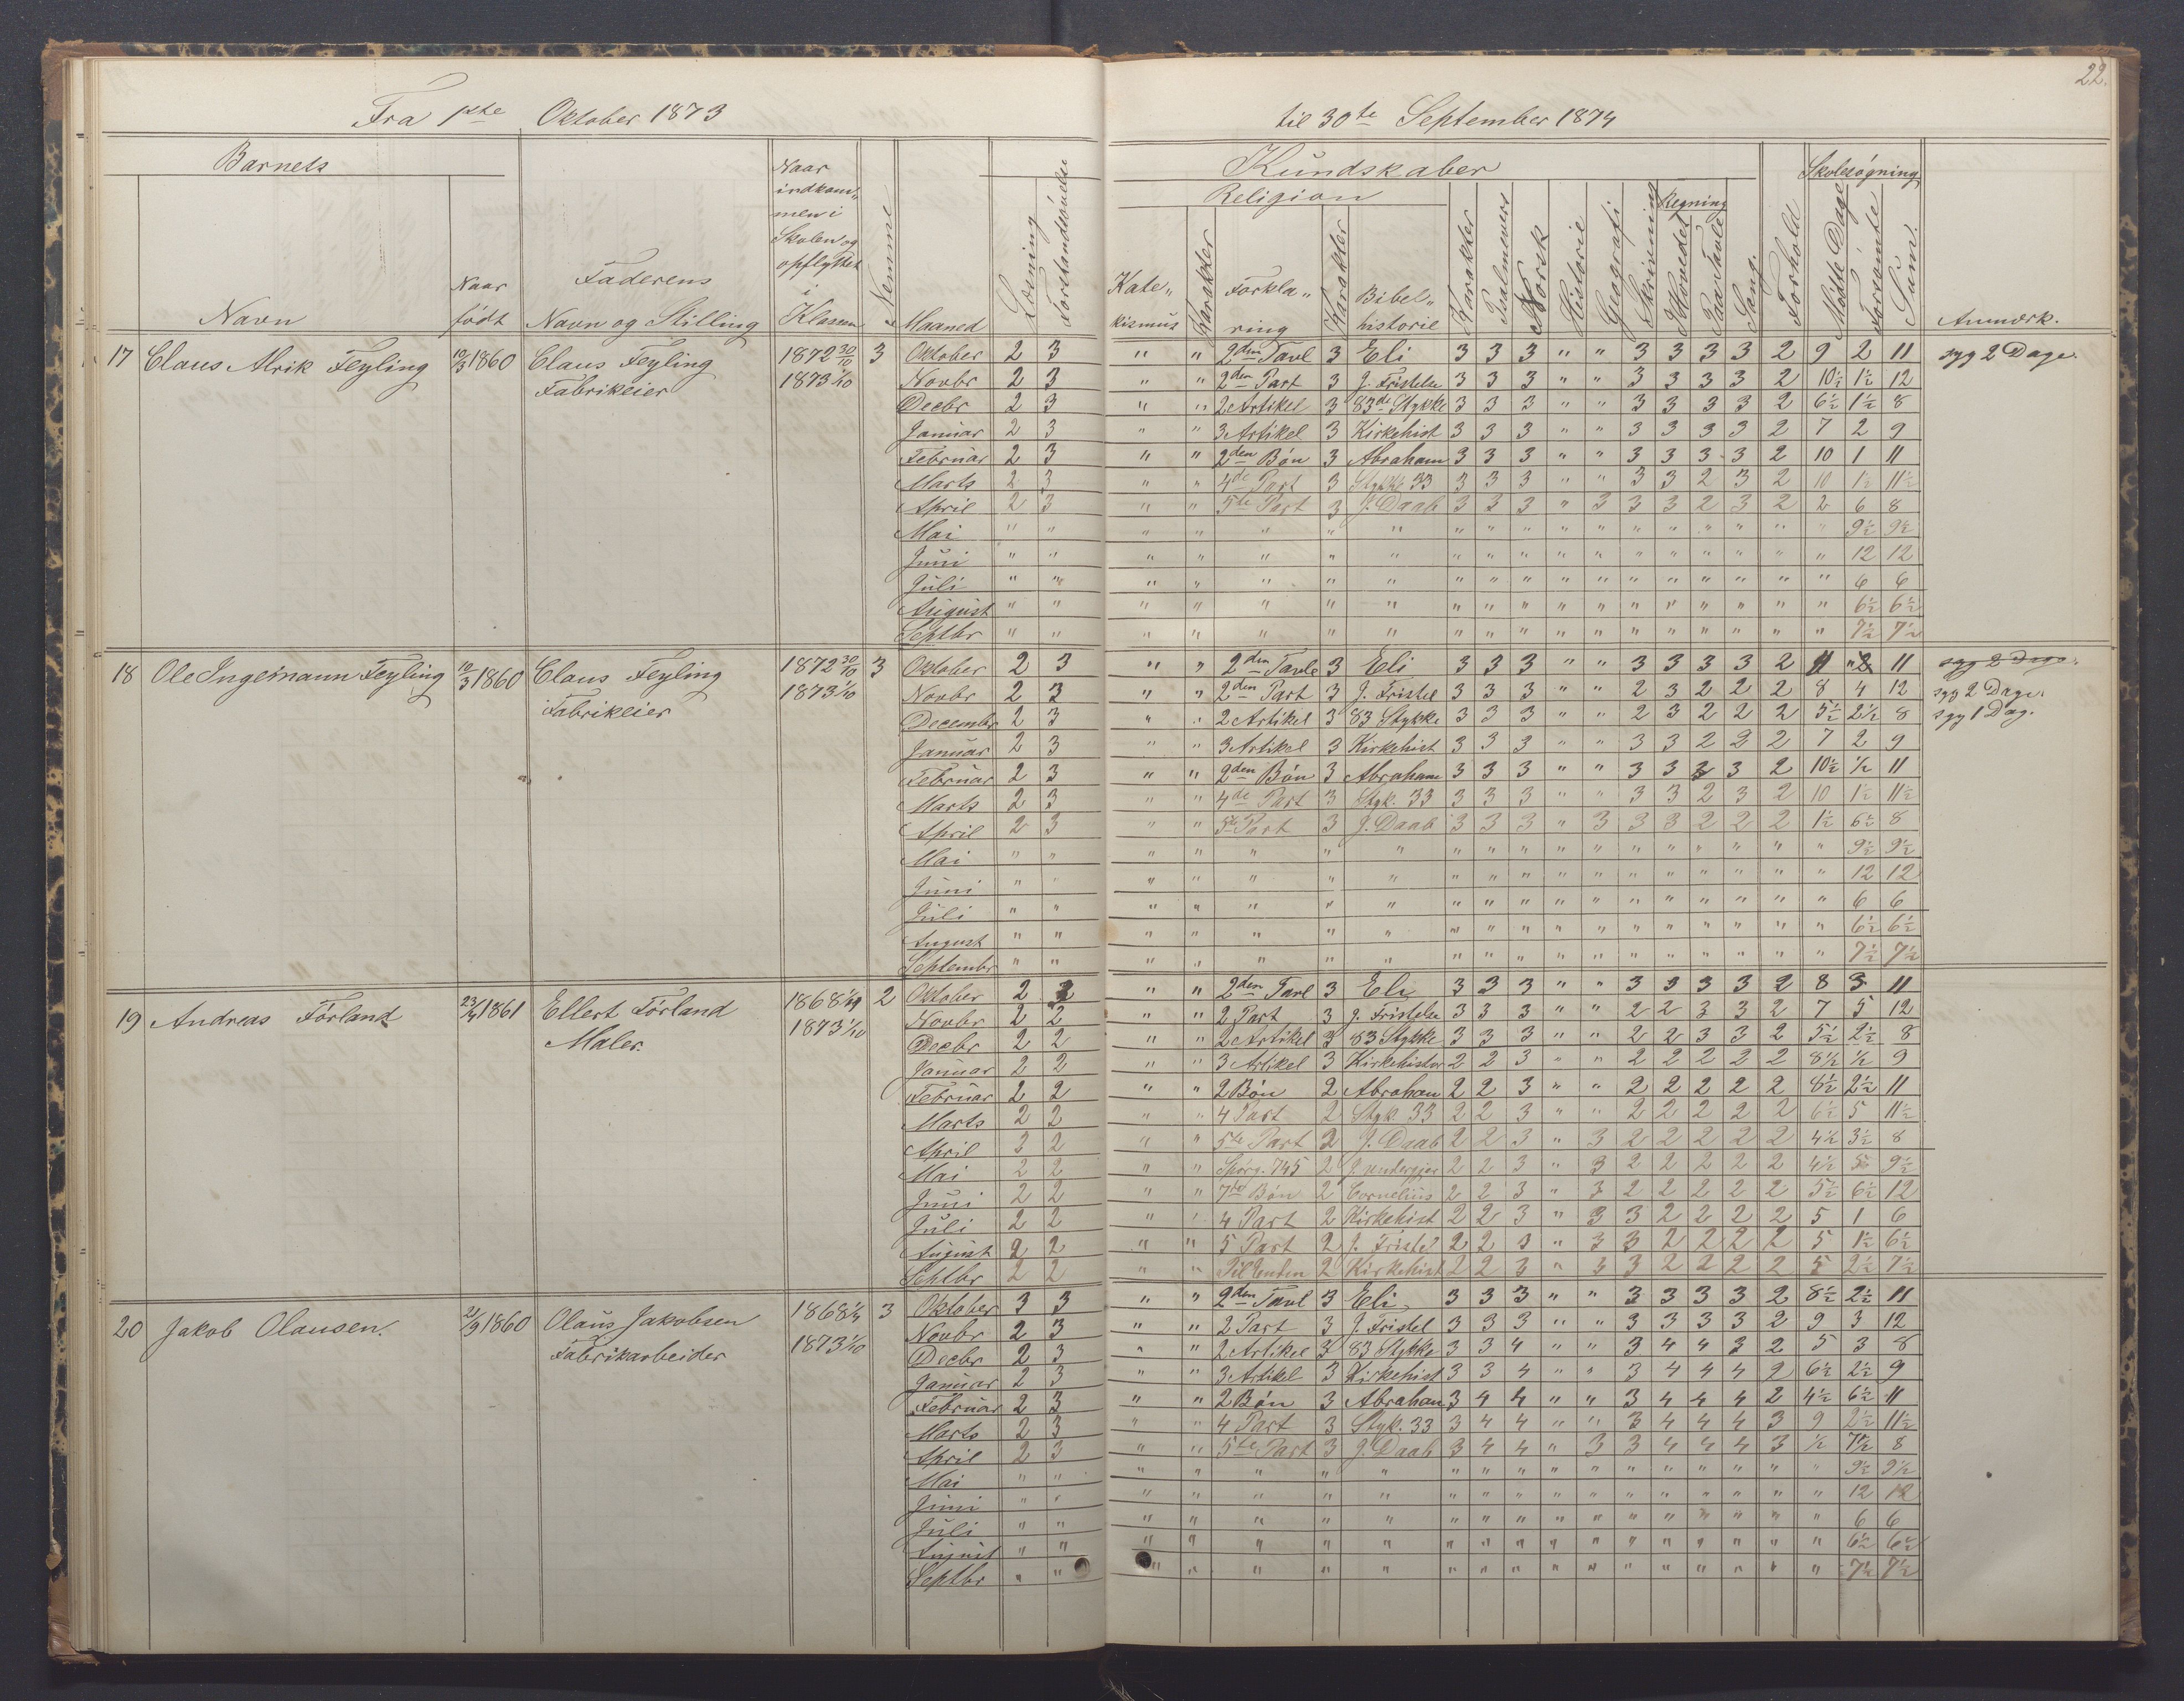 22.
Fra 1ste Oktober 1873 til 30te September 1874
Barnets
Navn
Naar født
Faderens Navn og Stilling
Naar indkommen i Skolen og opflyttet i Klassen
Nemme
Maaned
Læsning
Forstandsøvelse
Kundskaber
Religion
Katekismus
Karakter
Forklaring
Karakter
Bibelhistorie
Karakter
Psalmevers
Norsk
Historie
Geografi
Skrivning
Regning
I Hovedet
Paa Tavle
Sang.
Forhold
Skolesøgning
Mødte Dage
Forsømte
Sum.
Anmærk.
17 Claus Alrik Feyling 10/3 1860 Claus Feyling Fabrikeier 1872 30/10 1873 1/10 3
Oktober 2 3 " " 2den Tavl 3 Eli 3 3 3 " " 3 3 3 3 2 9 2 11 syg 2 Dage.
Novbr 2 3 " " 2den Part 3 J. Fristelse 3 3 3 " " 3 3 3 3 2 10½ 1½ 12
Decbr 2 3 " " 2 Artikel 3 83de Stykke 3 3 3 " " 3 3 3 3 2 6½ 1½ 8
Januar 2 3 " " 3 Artikel 3 Kirkehist 3 3 3 " " 3 3 3 3 2 7 2 9
Februar 2 3 " " 2den Bøn 3 Abraham 3 3 3 " " 3 3 3 3 2 10 1 11
Marts 2 3 " " 4de Part 3 Stykke 33 3 3 3 " " 3 3 2 3 2 10 1½ 11½
April 2 3 " " 5te Part 3 J. Daab 3 3 3 " 3 3 3 2 3 2 2 6 8
Mai " " " " " " " " " " " " " " " " " " 9½ 9½
Juni " " " " " " " " " " " " " " " " " " 12 12
Juli " " " " " " " " " " " " " " " " " " 6 6
August " " " " " " " " " " " " " " " " " " 6½ 6½
Septbr " " " " " " " " " " " " " " " " " " 7½ 7½
18 Ole Ingemann Feyling 10/3 1860 Claus Feyling Fabrikeier 1872 30/10 1873 1/10 3
Oktober 2 3 " " 2den Tavle 3 Eli 3 3 3 " " 3 3 3 3 2 11 " 11 syg 2 Dage.
Novbr 2 3 " " 2den Part 3 J. Fristel 3 3 3 " " 2 3 2 2 2 8 4 12 syg 2 Dage.
Decembr 2 3 " " 2 Artikel 3 83 Stykke 3 3 3 " " 2 3 2 2 2 5½ 2½ 8 syg 1 Dag.
Januar 2 3 " " 3 Artikel 3 Kirkehist 3 3 3 " " 3 3 2 2 2 7 2 9
Februar 2 3 " " 2den Bøn 3 Abraham 3 3 3 " " 3 3 3 3 2 10½ ½ 11
Marts 2 3 " " 4de Part 3 Styk. 33 3 3 3 " " 3 3 2 3 2 10 1½ 11½
April 2 3 " " 5te Part 3 J. Daab 3 3 3 " 3 3 3 2 2 2 1½ 6½ 8
Mai " " " " " " " " " " " " " " " " " " 9½ 9½
Juni " " " " " " " " " " " " " " " " " " 12 12
Juli " " " " " " " " " " " " " " " " " " 6 6
August " " " " " " " " " " " " " " " " " " 6½ 6½
Septembr " " " " " " " " " " " " " " " " " " 7½ 7½
19 Andreas Førland 23/4 1861 Ellert Førland Maler. 1868 1873 1/10 2
Oktober 2 2 " " 2den Tavl 3 Eli 3 3 3 " " 3 3 3 3 2 8 3 11
Novbr 2 2 " " 2 Part 3 J. Fristelse 3 3 3 " " 2 2 3 3 2 7 5 12
Decbr 2 2 " " 2 Artikel 3 83 Stykke 3 3 3 " " 2 2 3 3 2 5½ 2½ 8
Januar 2 2 " " 3 Artikel 3 Kirkehistor 2 2 3 " " 2 2 2 2 2 8½ ½ 9
Februar 2 2 " " 2 Bøn 2 Abraham 2 2 3 " " 2 2 2 2 2 8½ 2½ 11
Marts 2 2 " " 4 Part 2 Styk 33 2 2 3 " " 2 2 2 2 2 6½ 5 11½
April 2 2 " " 5te Part 2 J. Daab 2 2 3 " 3 2 2 2 2 2 4½ 3½ 8
Mai 2 2 " " Spörg. 745 2 J. undergjer 2 2 3 " 3 2 2 2 2 2 4½ 5 9½
Juni 2 2 " " 7de Bøn 2 Cornelius 2 2 3 " 3 2 2 2 2 2 5½ 6½ 12
Juli 2 2 " " 4 Part 2 Kirkehist 2 2 3 " 3 3 2 2 2 2 5 1 6
August 2 2 " " 5 Part 2 J. Fristel 2 2 3 " 3 3 2 2 2 2 5 1½ 6½
Septbr 2 2 " " Til Enden 2 Kirkehist 2 2 3 " 3 3 2 2 2 2 5 2½ 7½
20 Jakob Olausen. 21/9 1860 Olaus Jakobsen Fabrikarbeider 1868 1/4 1873 1/10 3
Oktober 3 3 " " 2den Tavl 3 Eli 3 3 3 " " 3 3 3 3 2 8½ 2½ 11
Novbr 2 3 " " 2 Part 3 J. Fristel 3 3 3 " " 3 3 3 3 2 9 3 12
Decbr 2 3 " " 2 Artikel 3 83 Stykke 3 3 4 " " 3 4 4 3 2 5 3 8
Januar 2 3 " " 3 Artikel 3 Kirkehist 3 3 4 " " 3 4 4 4 2 6½ 2½ 9
Februar 2 3 " " 2 Bøn 3 Abraham 3 4 4 " " 3 4 4 4 2 4½ 6½ 11
Marts 2 3 " " 4 Part 3 Styk. 33 3 4 4 " " 3 4 4 4 3 9 2½ 11½
April 2 3 " " 5te Part 3 J. Daab 3 4 4 " 3 3 4 4 4 3 ½ 7½ 8
Mai " " " " " " " " " " " " " " " " " " 9½ 9½
Juni " " " " " " " " " " " " " " " " " " 12 12
Juli " " " " " " " " " " " " " " " " " " 6 6
August " " " " " " " " " " " " " " " " " " 6½ 6½
Septbr " " " " " " " " " " " " " " " " " " 7½ 7½